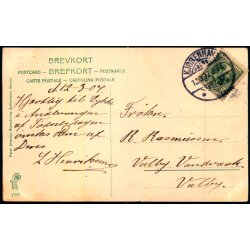 BREVKORT
POSTCARD — BREFKORT — POSTKARTE
CARTE POSTALE — CARTOLINA POSTALE
d. 12.3.07.
Hjertelig til Lykke
i Anledningen
af Fødselsdagen
ønskes Dem af
Deres
L. Henriksen
KJØBENHAVN
Frøken
R. Rasmussen
Valby Vandværk
Valby.